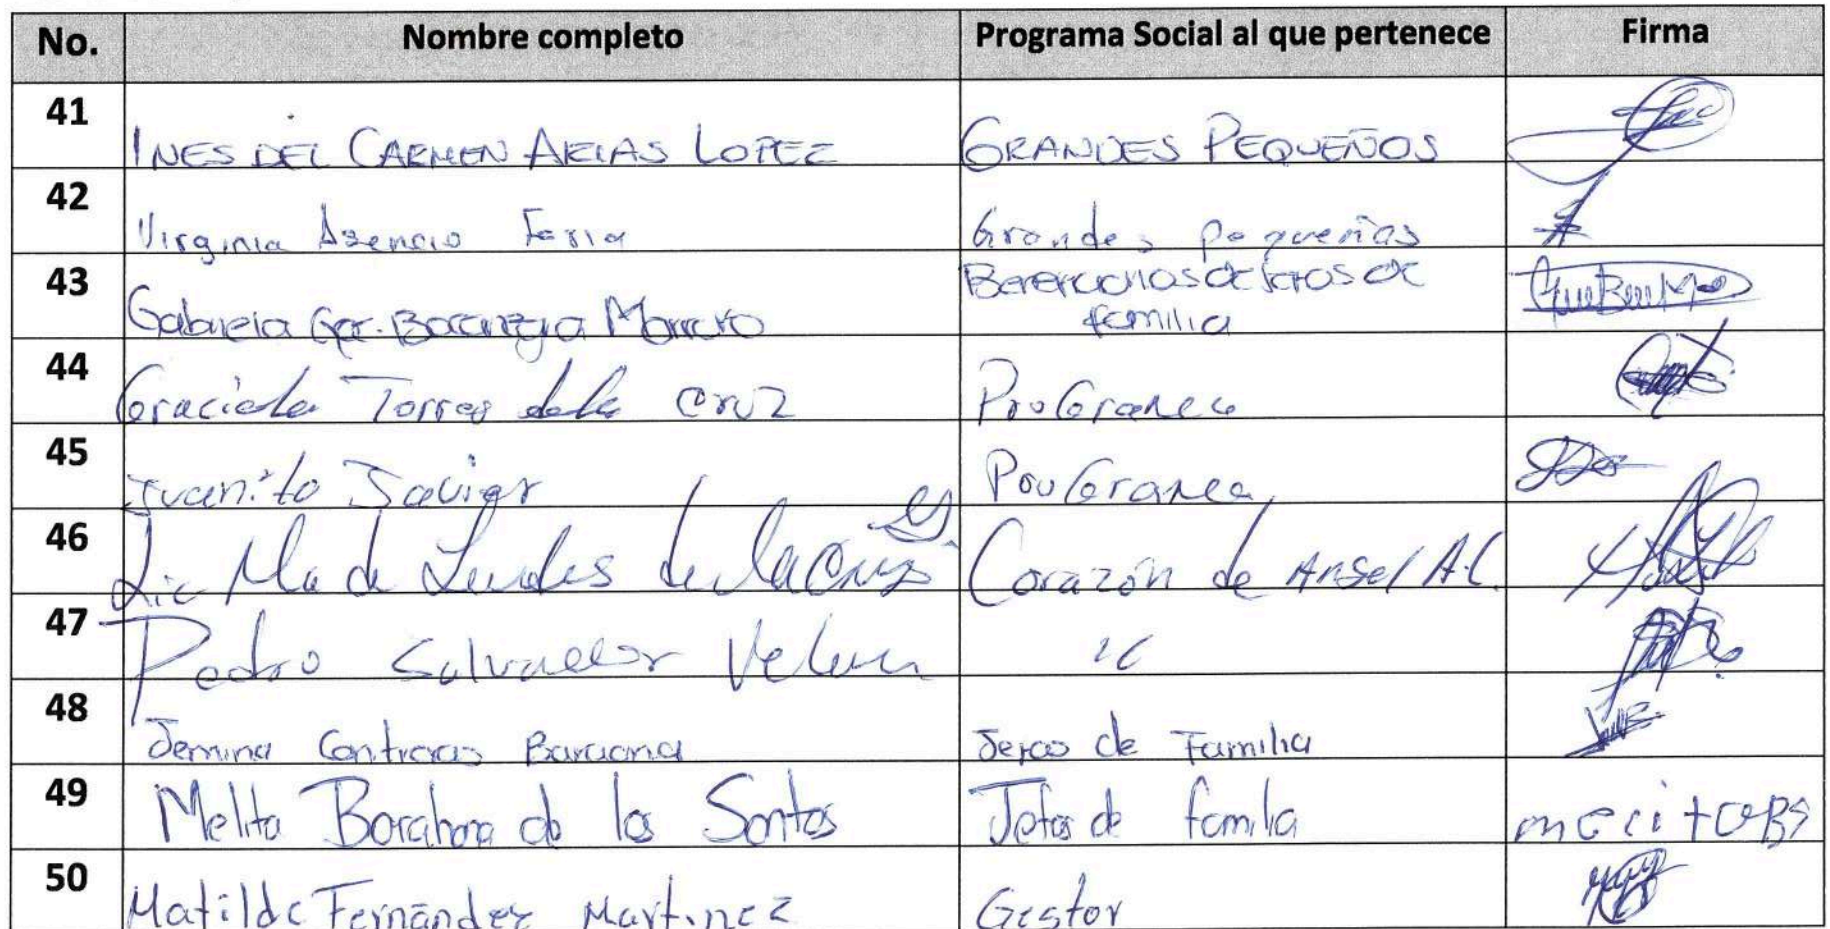 No. Nombre completo Programa Social al que pertenece Firma
41 INES DEL CARMEN ARIAS LOPEZ GRANDES PEQUEÑOS
42 Virginia Asencio Feria Grandes pequeñas
43 Gabriela Gpe. Morreno de Jefas de
familia
44 Graciela Torres de la Cruz ProGranea
45 Juanito Javier
46 Lic Ma de Lurdes de la Cruz Corazón de Angel A.C.
47 Pedro Salvador
48 Jemina Contreras Baraona Jefas de Familia
49 Melita Borahona de los Santos Jefas de familia
50 Matilde Fernández Martinez Gestor